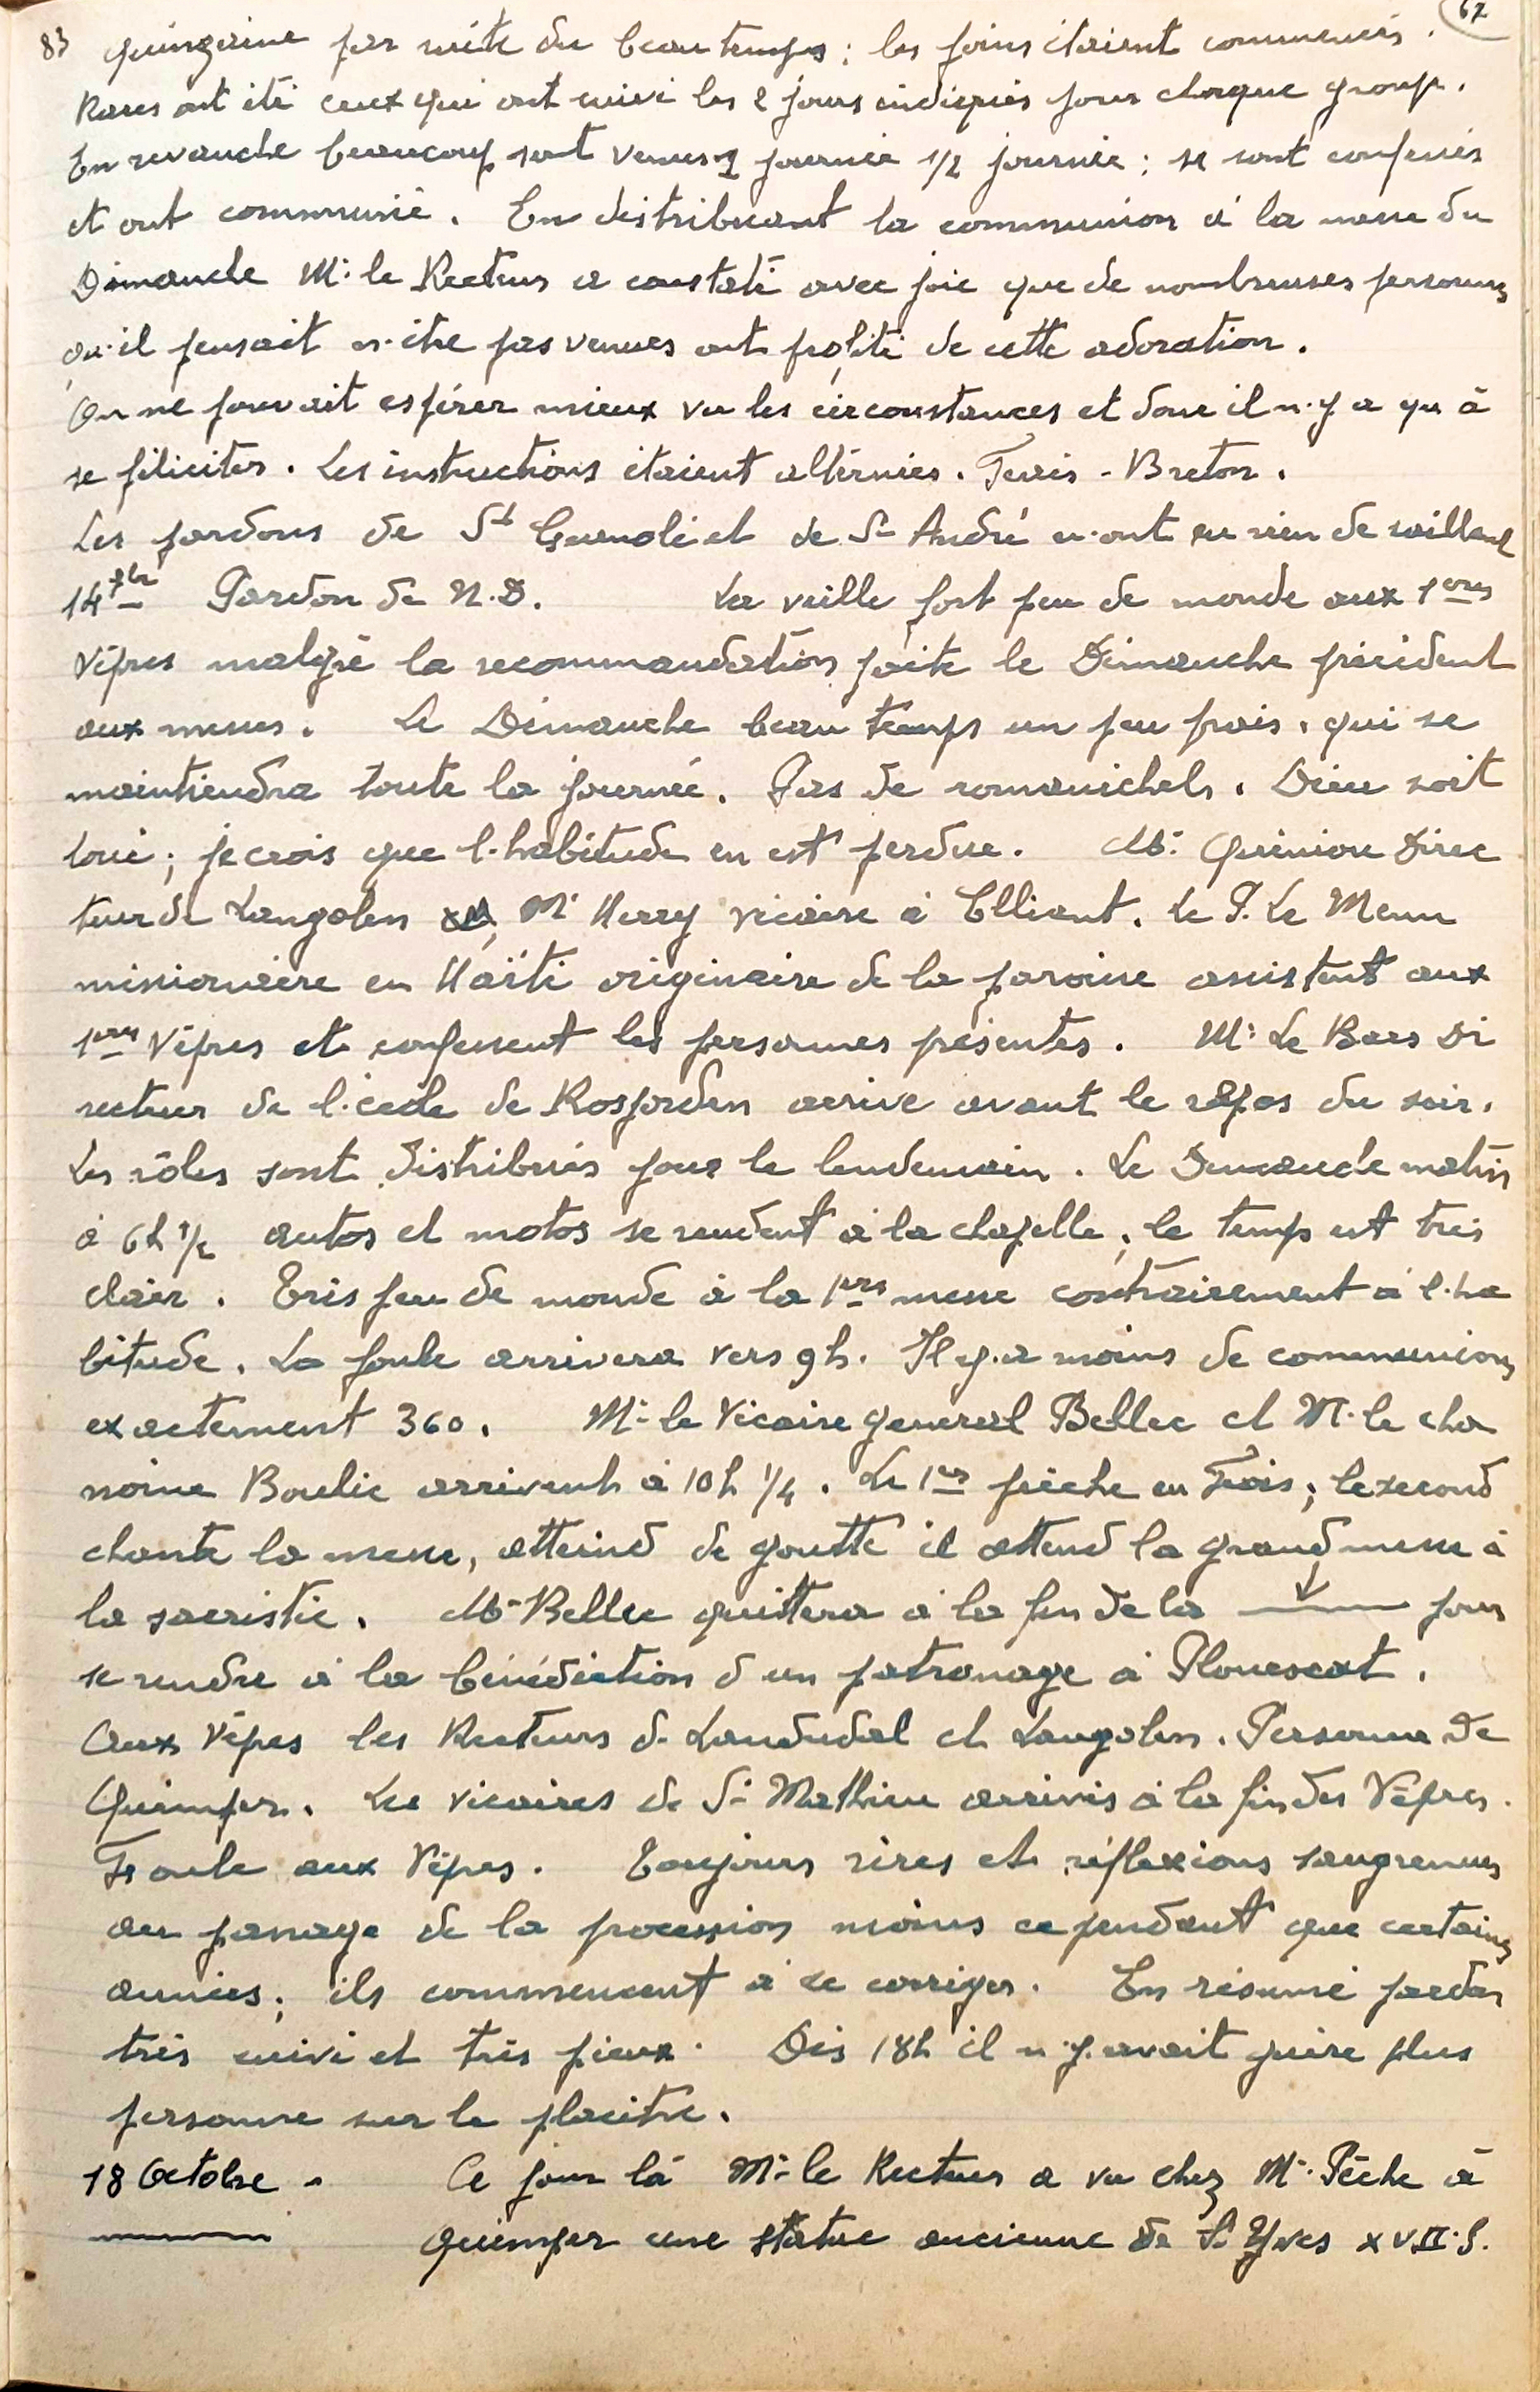 83 quinzaine par suite du beau temps : les foins étaient commencés. 62
Rares ont été ceux qui ont suivi les 2 jours indiqués pour chaque groupe.
En revanche beaucoup sont venus 1 journée 1/2 journée ; se sont confessés
et ont communié. En distribuant la communion à la messe du
Dimanche Mr le Recteur a constaté avec joie que de nombreuses personnes
qu'il pensait n'être pas venues ont profité de cette adoration.
On ne pouvait espérer mieux vu les circonstances et donc il n'y a qu'à
se féliciter. Les instructions étaient alternées. Frais - Breton.
Les pardons de St Guenolé et de St André n'ont eu rien de saillant
14 7bre Pardon de N.D. La veille fort peu de monde aux 1eres
Vêpres malgré la recommandation faite le Dimanche précédent
aux messes. Le Dimanche beau temps un peu frais, qui se
maintiendra toute la journée. Pas de romanichels. Dieu soit
loué ; je crois que l'habitude en est perdue. Mr Quiniou Direc
teur de Langolen Mr Herry vicaire à Elliant. Le P. Le Menn
missionnaire en Haïti originaire de la paroisse assistent aux
1eres Vêpres et confessent les personnes présentes. Mr Le Bars Di
recteur de l'école de Rosporden arrive avant le repas du soir.
Les rôles sont distribués pour le lendemain. Le Dimanche matin
à 6h 1/2 autos et motos se rendent à la chapelle ; le temps est très
clair. Très peu de monde à la 1ere messe contrairement à l'ha
bitude. La foule arrivera vers 9h. Il y a moins de communions
exactement 360. Mr le Vicaire general Bellec et M. le cha
noine Boulic arrivent à 10h 1/4. Le 1er prêche en Frais ; le second
chante la messe, atteind de goutte il attend la grand messe à
la sacristie. Mr Bellec quittera à la fin de la pour
se rendre à la bénédiction d'un patronage à Plouescat.
Aux Vêpres les Recteurs de Landudal et Langolen. Personne de
Quimper. Les vicaires de St Mathieu arrivés à la fin des Vêpres.
Foule aux Vêpres. Toujours rires et réflexions saugrenues
au passage de la procession moins cependant que certaines
années ; ils commencent à se corriger. En résumé pardon
très suivi et très pieux. Dès 18h il n'y avait guère plus
personne sur le placitre.
18 Octobre - Ce jour là Mr le Recteur a vu chez Mr Pêche à
Quimper une statue ancienne de St Yves XVII S.